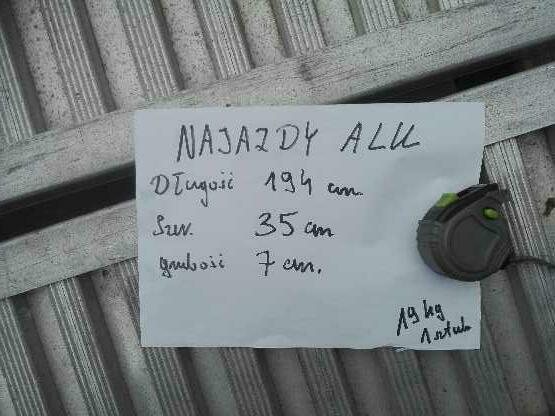 NAJAZDY ALU
Długość 194 cm
Szer. 35 cm
grubość 7 cm.
19 kg
1 sztuk